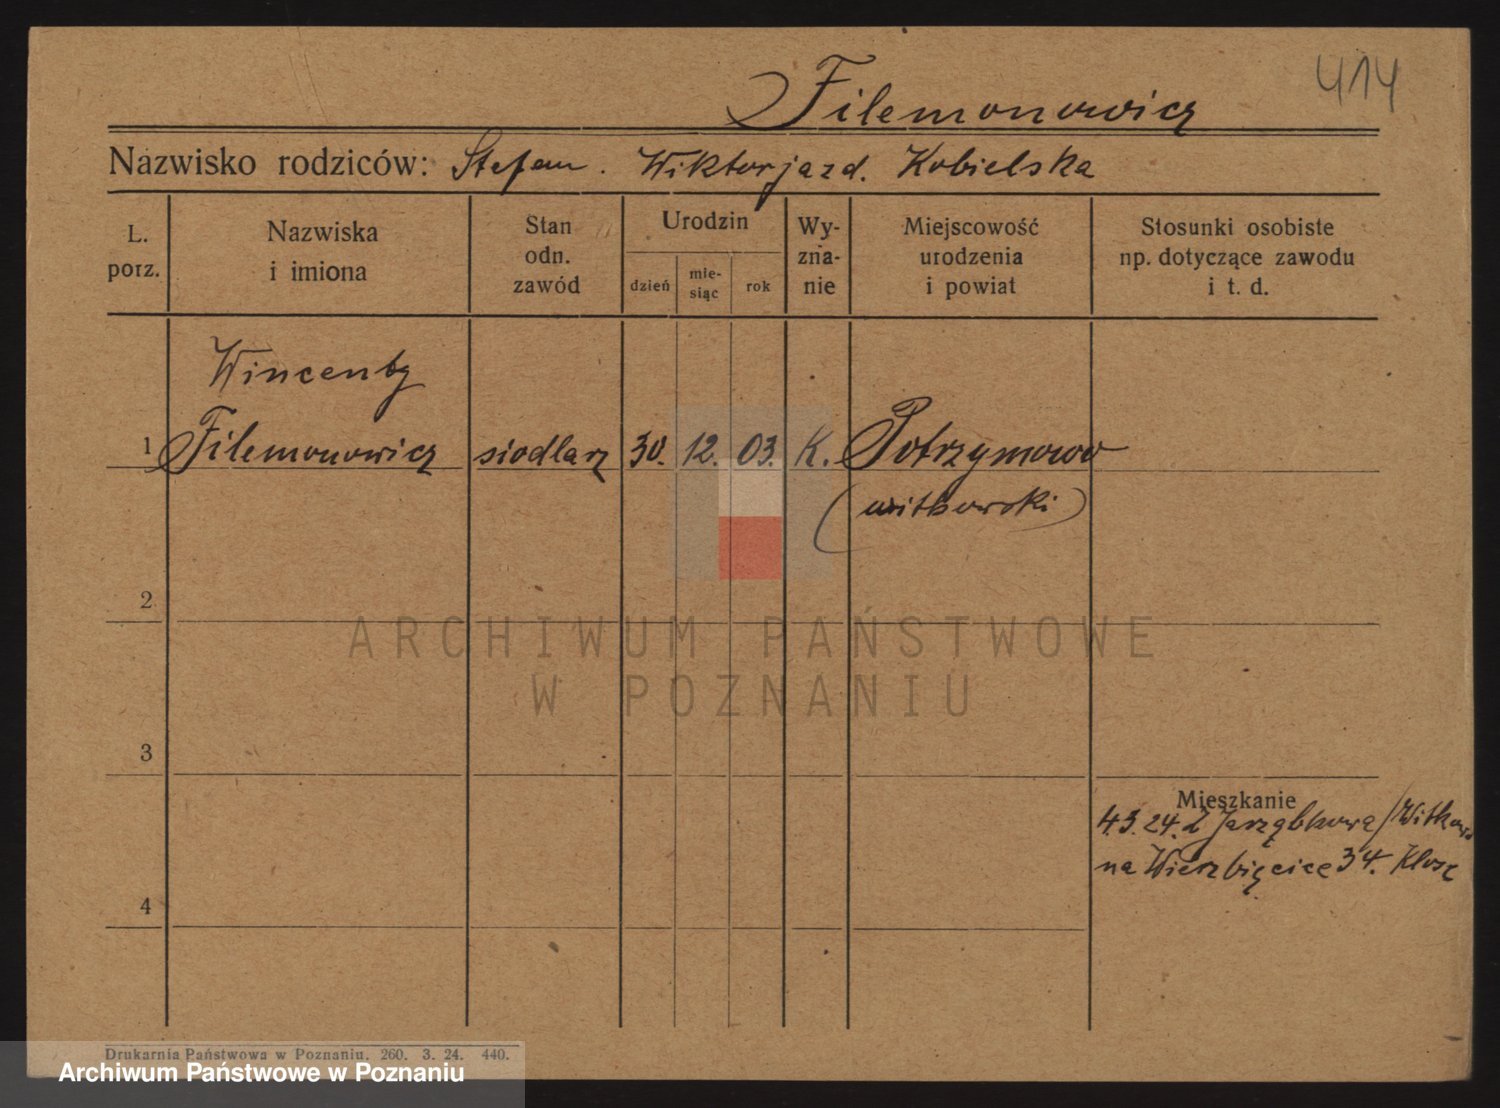 414
Filemonowicz
Nazwisko rodziców: Stefan. Wiktorja zd. Kobielska
L. porz.
Nazwiska i imiona
Stan odn. zawód
Urodzin
dzień
mie-siąc
rok
Wy-zna-nie
Miejscowość urodzenia i powiat
Stosunki osobiste np. dotyczące zawodu i t. d.
Wincenty
1 Filemonowicz siodlarz 30. 12. 03. K. Potrzymowo
(witkowski)
2
ARCHIWUM PAŃSTWOWE
W POZNANIU
3
Mieszkanie
4.3.24. z Jarząbkowa/Witkowo
na Wierzbięcice 34. Klosę
4
Drukarnia Państwowa w Poznaniu. 260. 3. 24. 440.
Archiwum Państwowe w Poznaniu